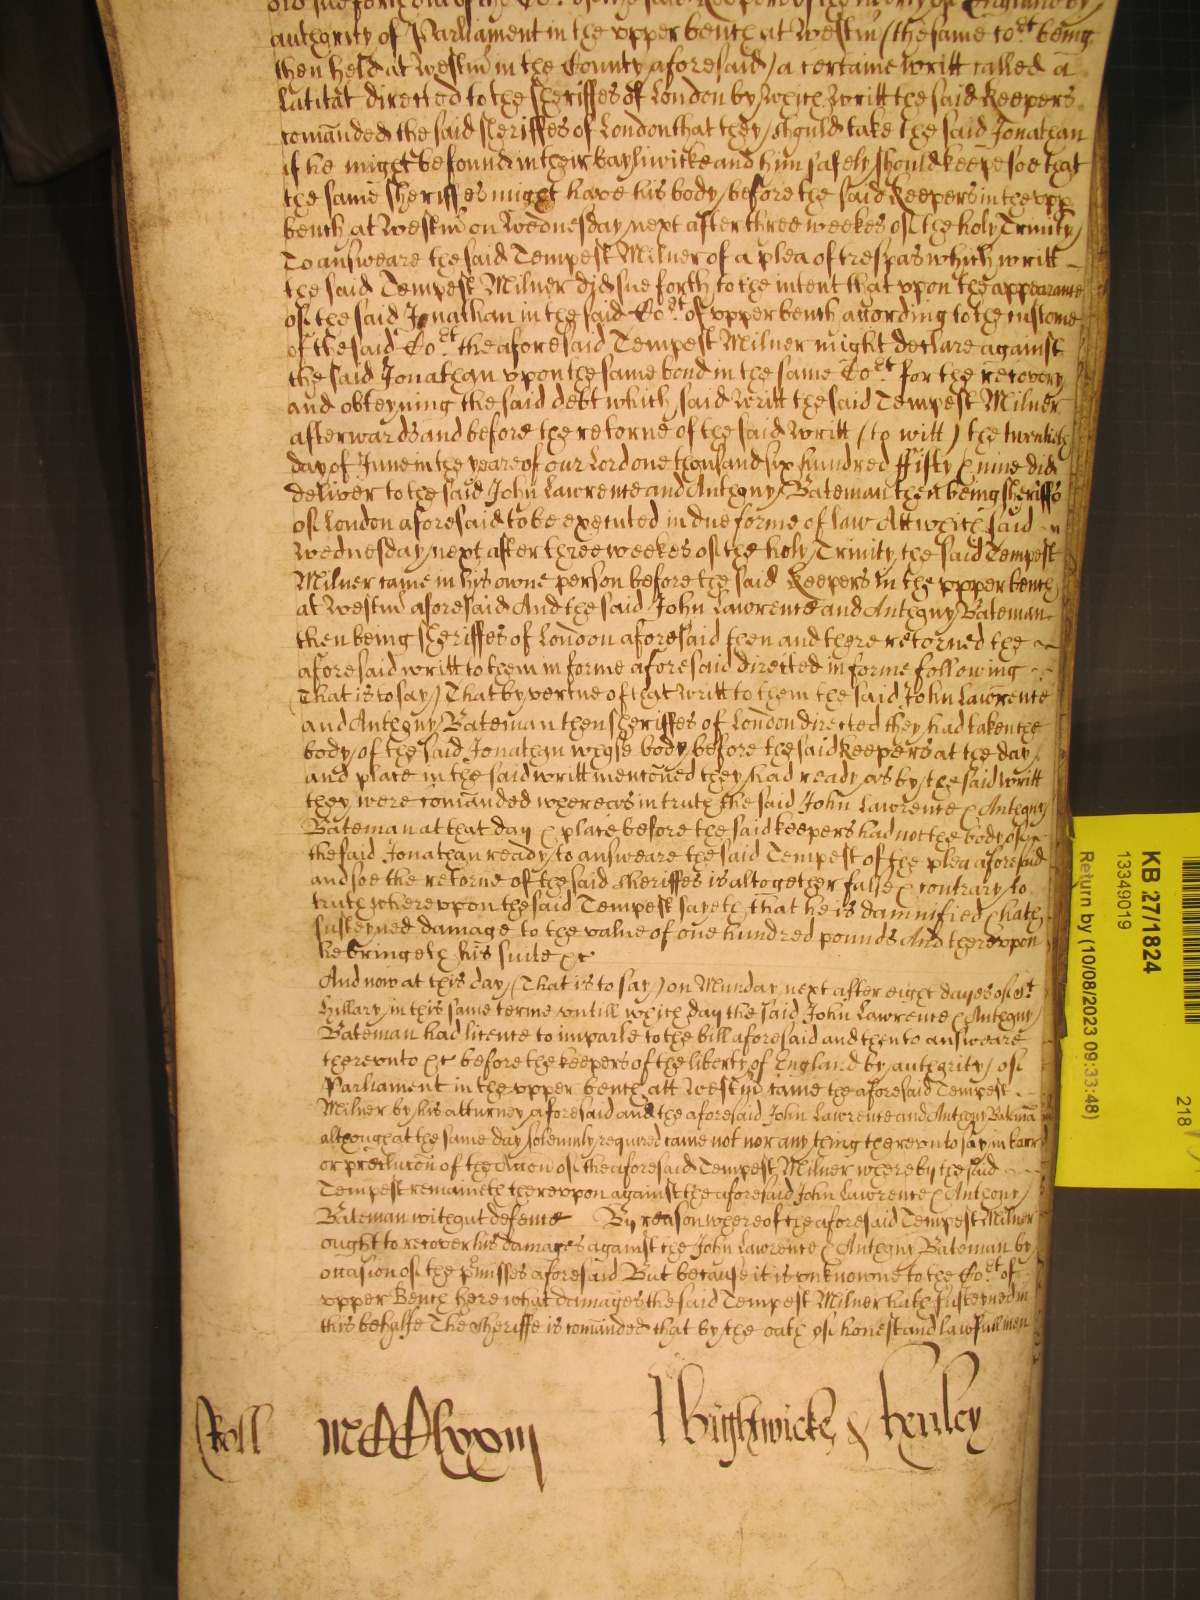 did sue forth out of the Co:rt of the said Keepers of the liberty of England by
authority of Parliament in the upper bench at Westm̄ (the same Co:rt being
then held at Westm̄ in the County aforesaid) a certaine writt called a
Latitat directed to the sheriffes of London by which writt the said Keepers
com̄anded the said sheriffes of London that they should take the said Jonathan
if he might be found in their bayliwicke and him safely should keepe soe that
the same sheriffes might have his body before the said Keepers in the upp
bench at Westm̄ on Wednesday next after three weekes of the holy Trinity
To answeare the said Tempest Milner of a plea of trespas which writt
the said Tempest Milner did sue forth to the intent that upon the appearance
of the said Jonathan in the said Co:rt of upper bench according to the custome
of the said Co:rt the aforesaid Tempest Milner might declare against
the said Jonathan upon the same bond in the same Co:rt for the recovery
and obteyning the said debt which said writt the said Tempest Milner
afterwards and before the returne of the said writt (to witt) the twentieth
day of June in the yeare of our Lord one thousand six hundred ffifty & nine did
deliver to the said John Lawrence and Anthony Bateman then being sheriffs
of London aforesaid to be executed in due forme of law Att which said
Wednesday next after three weekes of the holy Trinity the said Tempest
Milner came in his owne person before the said Keepers in the upper bench
at Westm̄ aforesaid And the said John Lawrence and Anthony Bateman
then being sheriffes of London aforesaid then and there retorned the
aforesaid writt to them in forme aforesaid directed in forme following
(That is to say) That by vertue of that writt to them the said John Lawrence
and Anthony Bateman then sheriffes of London directed they had taken the
body of the said Jonathan whose body before the said keepers at the day
and place in the said writt mentoned they had ready as by the said writt
they were com̄anded whereas in truth the said John Lawrence & Anthony
Bateman at that day & place before the said keepers had not the body of
the said Jonathan ready to answeare the said Tempest of the plea aforesaid
and soe the retorne of the said sheriffes is altogether false & contrary to
truth whereupon the said Tempest sayeth that he is damnified & hath
susteyned damage to the value of one hundred pounds And thereupon
he bringeth his suite &c
And now at this day (That is to say) on Munday next after eight dayes of st
Hillary in this same terme untill which day the said John Lawrence & Anthony
Bateman had licence to imparle to the bill aforesaid and then to answeare
thereunto &c before the keepers of the liberty of England by authority of
Parliament in the upper bench att Westm̄ came the aforesaid Tempest
Milner by his atturney aforesaid and the aforesaid John Lawrence and Anthony Batemā
although at the same day solemnly required came not nor any thing thereunto say in barr
or preclucon of the accon of the aforesaid Tempest Milner whereby the said
Tempest remaineth thereupon against the aforesaid John Lawrence & Anthony
Bateman without defence By reason whereof the aforesaid Tempest Milner
ought to recover his damages against the John Lawrence & Anthony Bateman by
occasion of the p̄misses aforesaid But because it is unknowne to the Co:rt of
upper Bench here what damages the said Tempest Milner hath susteyned in
this behalfe The sheriffe is com̄anded that by the oath of honest and lawfull men
Roll MCClxxiij Hightwicke & Henley
KB 27/1824
13349019
Return by (10/08/2023 09:33:48)
218